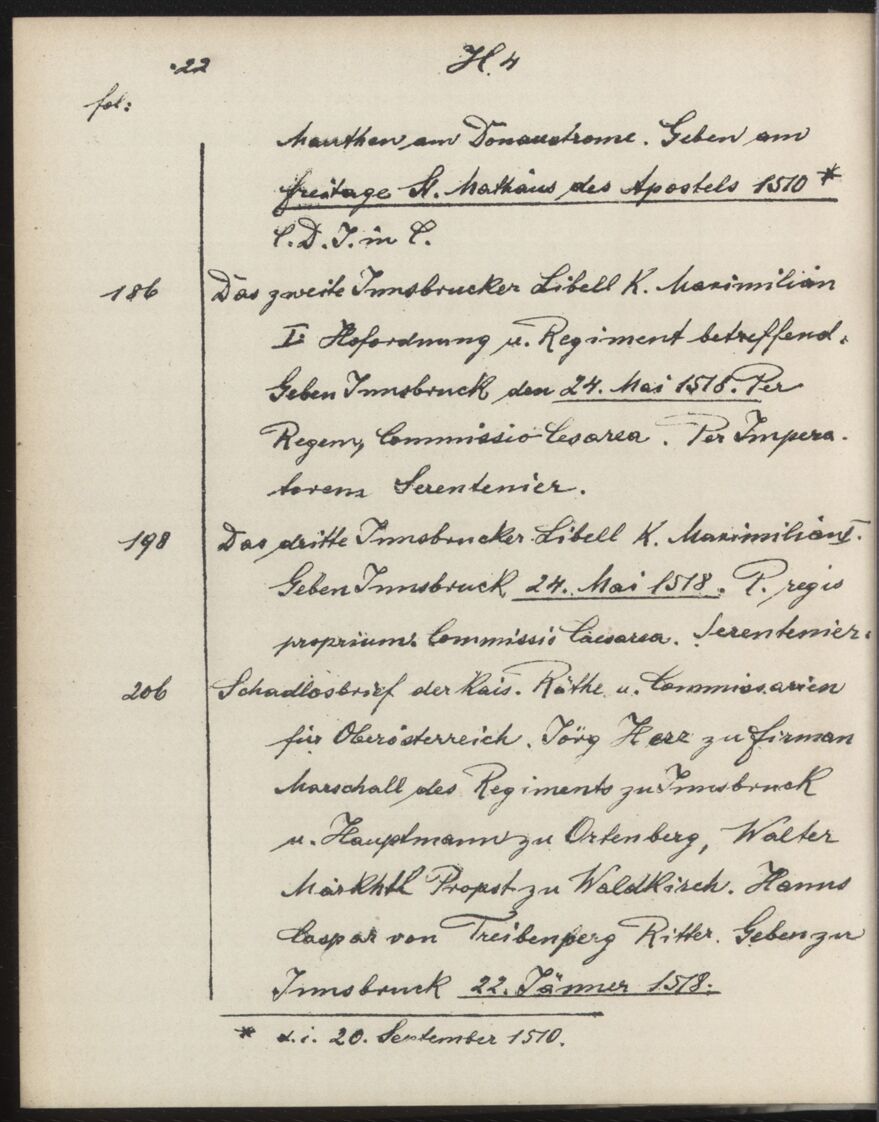 22 H. 4
fol:
Maurthen am Donaustrome. Geben am
freitage St. Mathäus des Apostels 1510 *
C. D. J. in C.
186 Das zweite Innsbrucker Libell K. Maximilian
I. Hofordnung u. Regiment betreffend.
Geben Innsbruck den 24. Mai 1518. Per
Regem, Commissio Cesarea. Per Impera-
torem Serentenier.
198 Das dritte Innsbrucker Libell K. Maximilian I.
Geben Innsbruck 24. Mai 1518. P. regis
proprium. Commissio Caesarea. Serentenier.
206 Schadlosbrief der kais. Räthe u. Commissarien
für Oberösterreich. Jörg Herz zu Firman
Marschall des Regiments zu Innsbruck
u. Hauptmann zu Ortenberg, Walter
Märkhtl Propst zu Waldkirch. Hanns
Caspar von Treibenperg Ritter. Geben zu
Innsbruck 22. Jänner 1518.
* d. i. 20. September 1510.